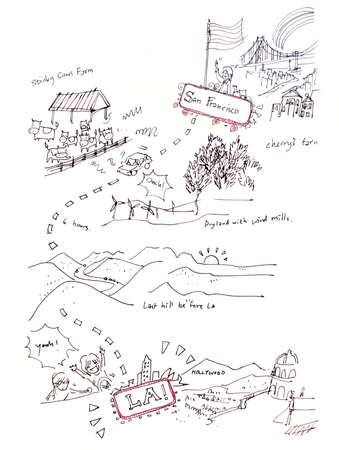 Stinky Cows Farm
San Francisco
cherry's farm
Yuck!
6 hours.
Dryland with wind mills.
Last hill before LA
yeah!
HOLLYWOOD
LA!